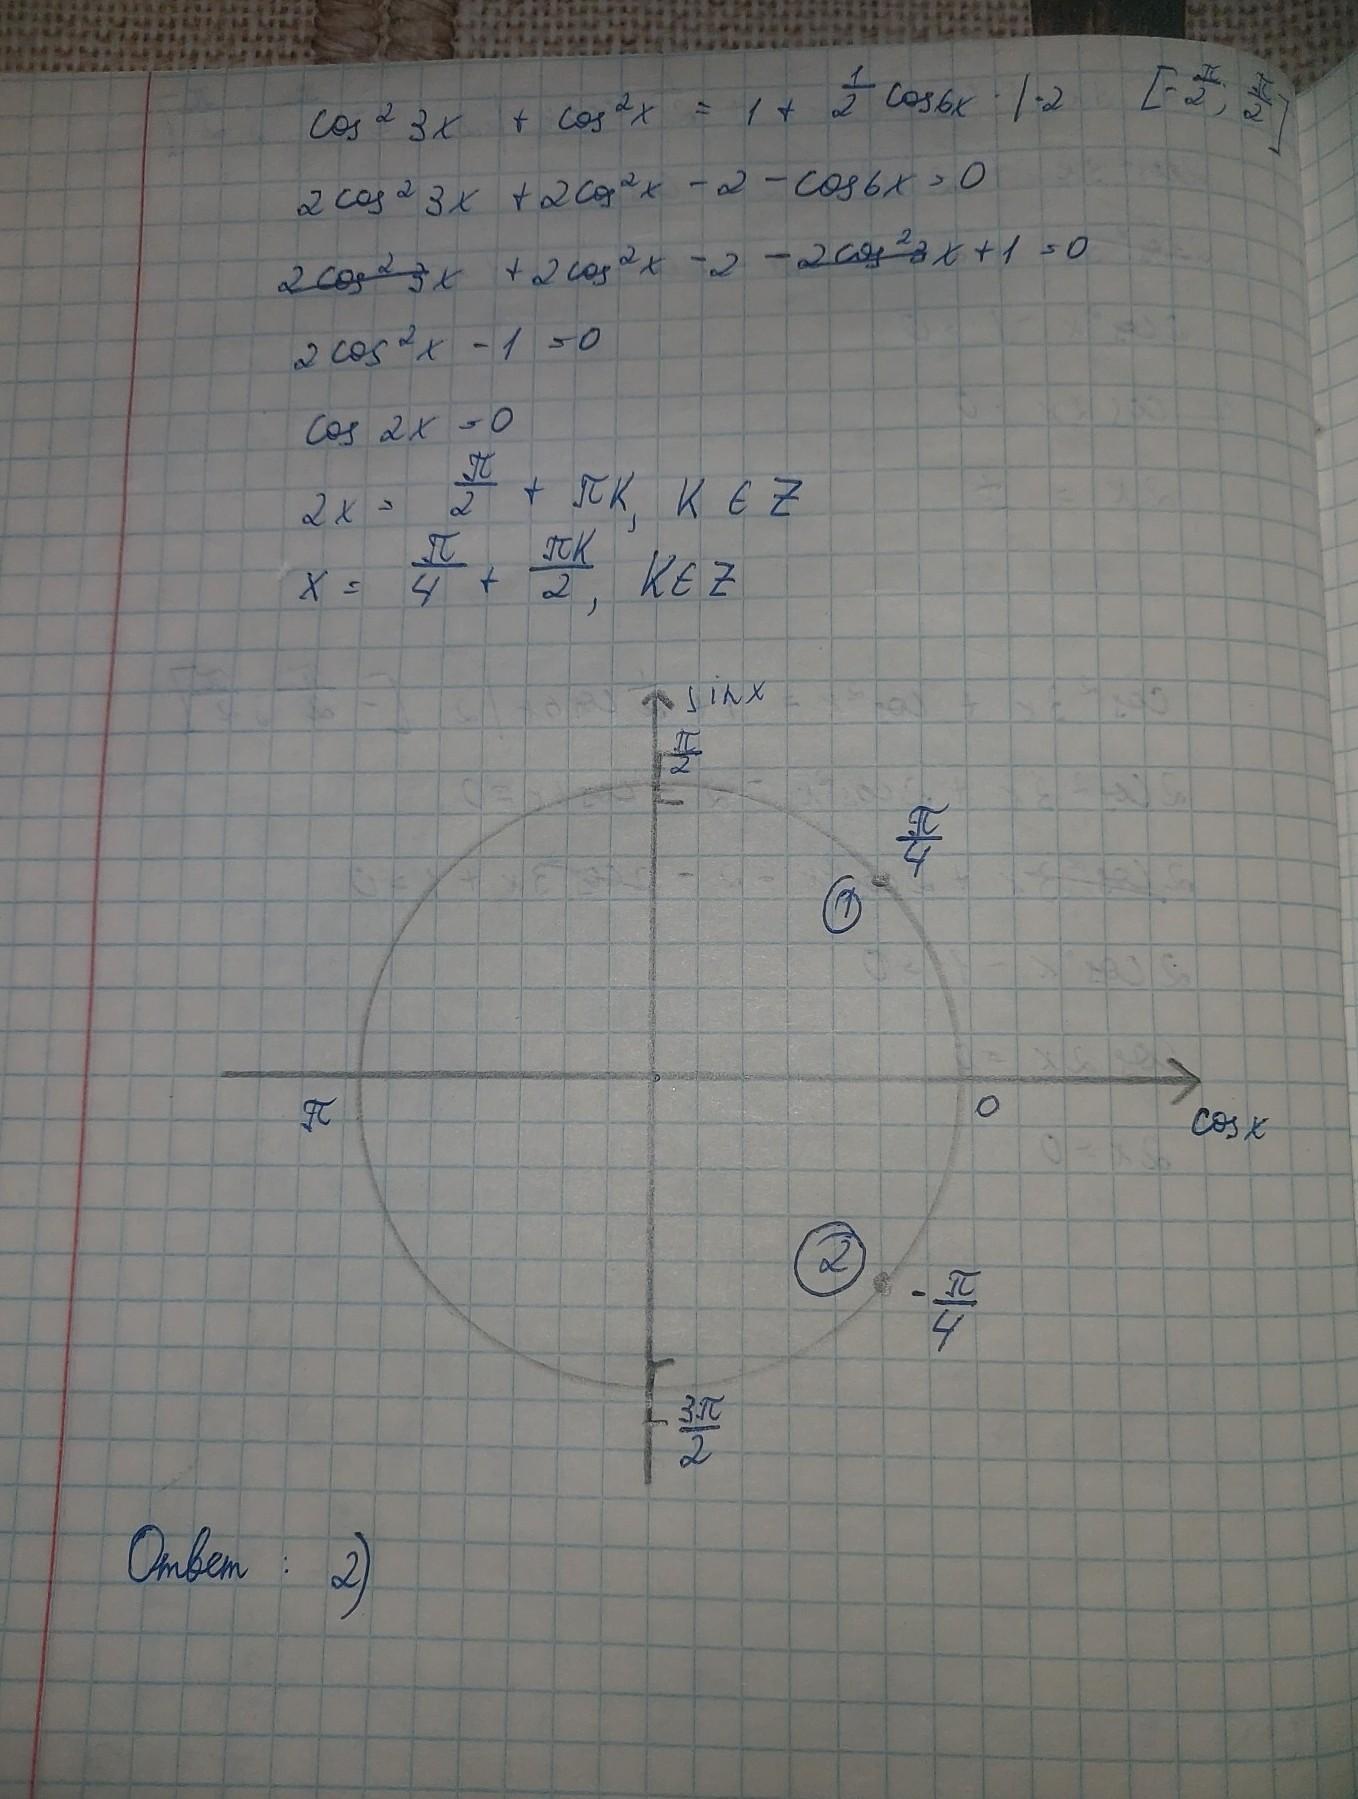 cos² 3x + cos²x = 1 + 1/2 cos6x · | ·2 [-π/2; π/2]
2cos² 3x + 2cos²x - 2 - cos6x = 0
2cos² 3x + 2cos²x - 2 - 2cos²3x + 1 = 0
2cos²x - 1 = 0
cos 2x = 0
2x = π/2 + πK, K ∈ Z
x = π/4 + πK/2, K ∈ Z
sinx
π/2
π/4
1
π
0
cosx
2
-π/4
3π/2
Ответ: 2)